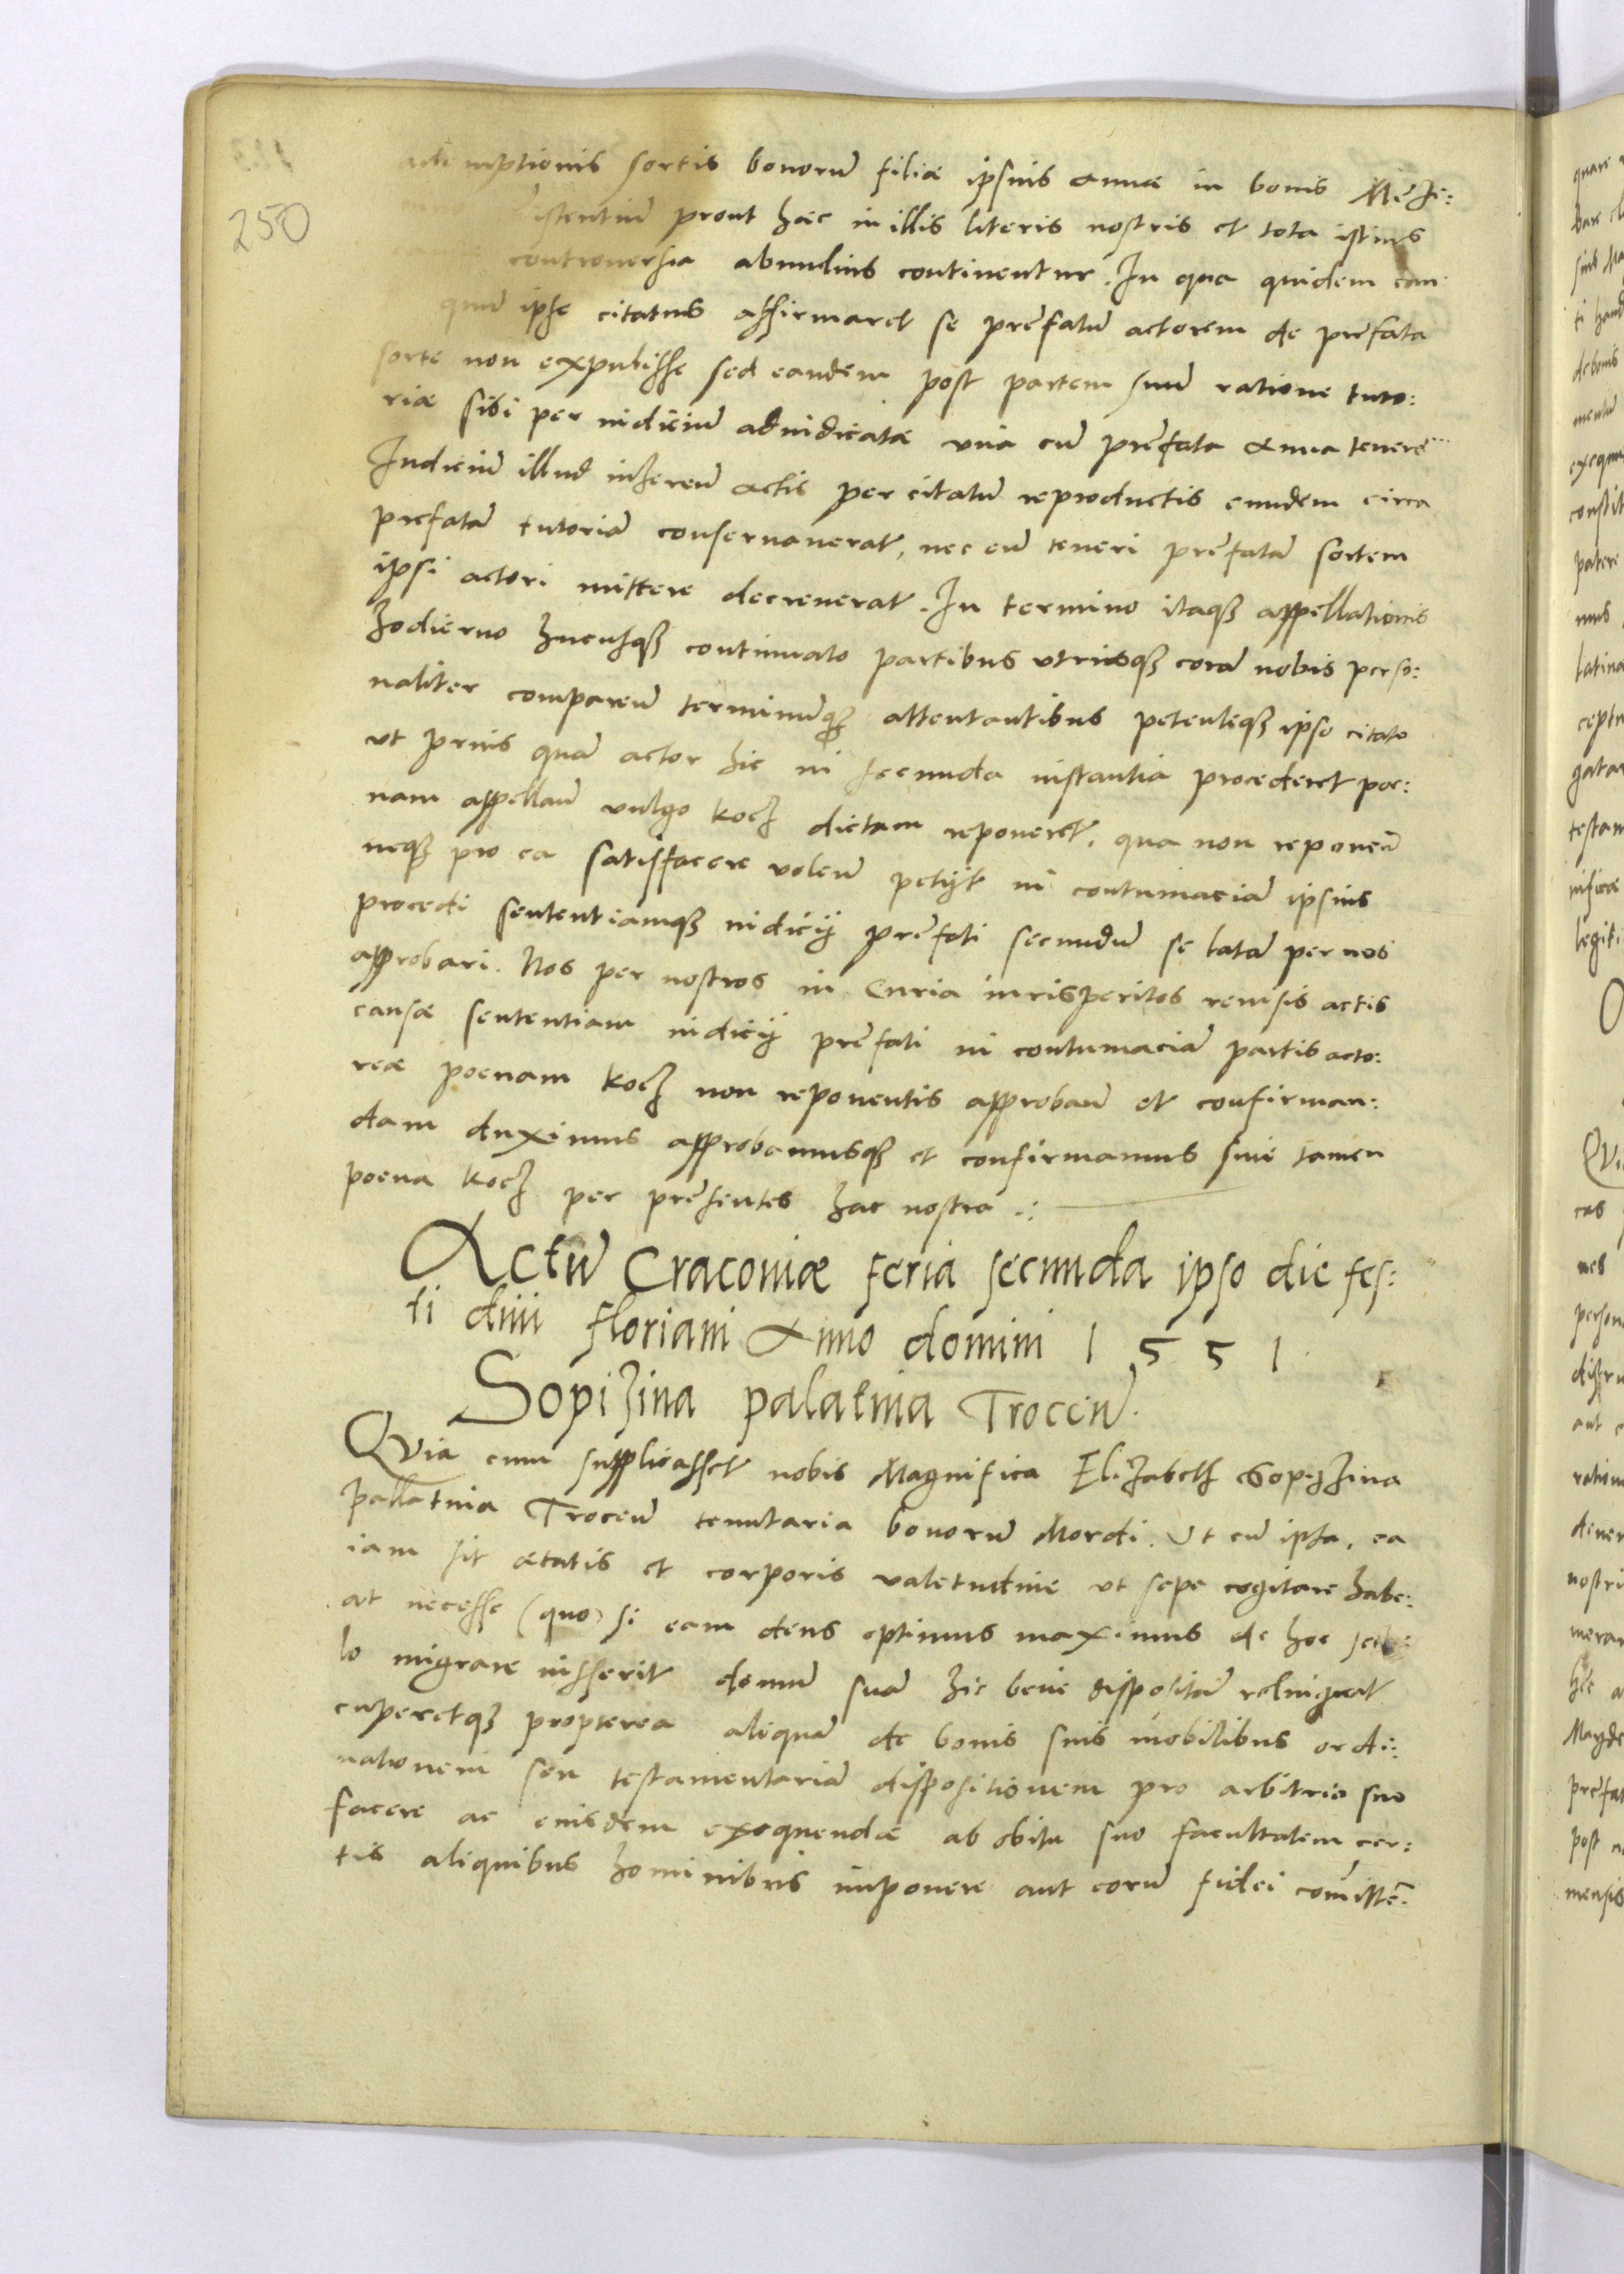 250
ademptionis sortis bonorũ filiæ ipsius Annæ in bonis
istentiũ prout hæc in illis literis nostris et tota istius
controuersia abundius continentur. In qua quidem cau
quũ ipse citatus affirmaret se prefatũ actorem de prefata
sorte non expulisse sed eandem post partem suã ratione tuto:
riæ sibi per iudiciũ adiudicatæ vna cũ prefata Anna tenere
Iudiciũ illud inhæreñ actis per citatũ reproductis eundem circa
prefatã tutoriã conseruauerat, nec eũ teneri prefatã sortem
ipsi actori mittere decreuerat. In termino itaqꝫ appellationis
hodierno hucusqꝫ continuato partibus vtrisqꝫ corã nobis perso:
naliter compareñ terminũqꝫ attentantibus petenteqꝫ ipso citato
vt prius quã actor hic in secunda instantia procederet poe:
nam appellañ vulgo kocz dictam reponeret, qua non reponeñ
neqꝫ pro ea satisfacere voleñ petijt in contumaciã ipsius
procedi sententiamqꝫ iudicij prefati secundũ se latã per nos
approbari. Nos per nostros in Curia iurisperitos reuisis actis
causæ sententiam iudicij prefati in contumaciã partis acto:
reæ poenam kocz non reponentis approbañ et confirman:
dam duximus approbamusqꝫ et confirmamus sine tamen
poena kocz per presentes hac nostra .:
Actũ Cracouiæ feria secunda ipso die fes:
ti diui floriani Anno domini 1551
Sopizina palatina Troceñ.
QVia cum supplicasset nobis Magnifica Elizabeth Sopizzina
pallatina Troceñ tenutaria bonorũ Mordi. Vt cũ ipsa, ea
iam sit ætatis et corporis valetudine vt sepe cogitare habe:
at necesse (quo) si eam deus optimus maximus de hoc secu:
lo migrare iusserit domũ suã hic bene dispositã relinquat
cuperetqꝫ propterea aliquã de bonis suis mobilibus ordi:
nationem seu testamentariã dispositionem pro arbitrio suo
facere ac eiusdem exequendæ ab obitu suo facultatem cer:
tis aliquibus hominibus imponere aut eorũ fidei comittẽ: